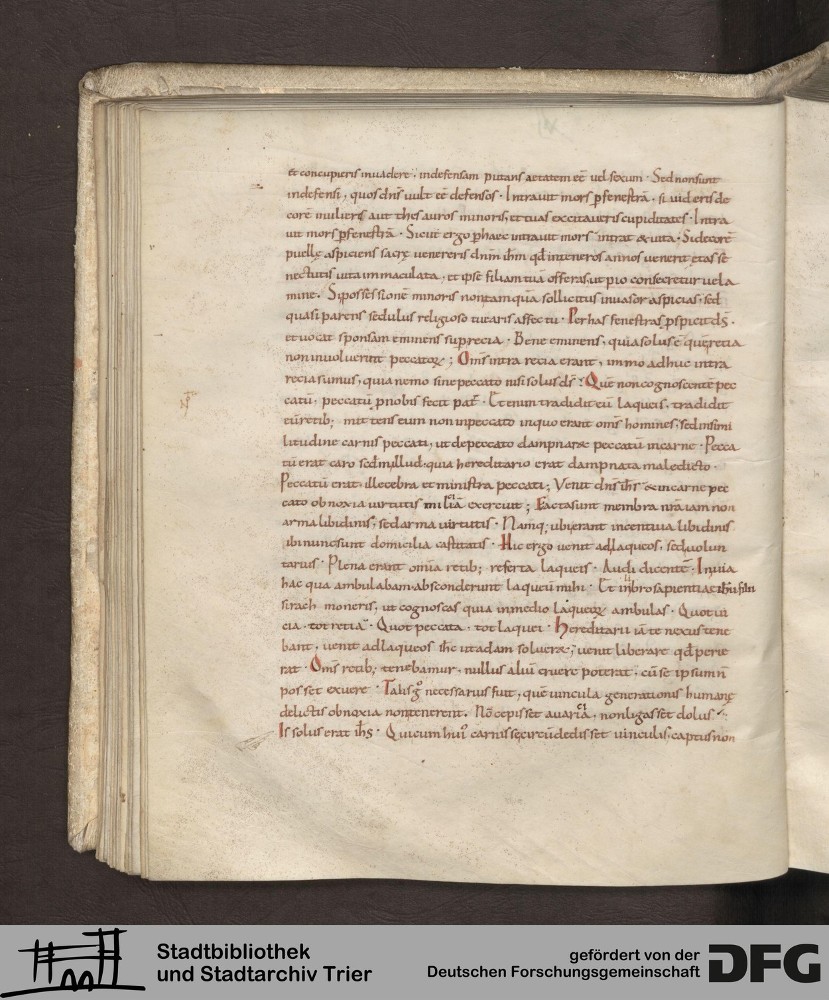 et concupieris invadere, indefensam putans aetatem eē vel sexum. Sed non sunt
indefensi, quos dn̄s vult eē defensos. Intravit mors ꝑ fenestrā. si videris de
corē mulieris aut thesauros minoris, et tuas excitaveris cupiditates. Intra
vit mors ꝑ fenestrā. Sicut ergo ꝑ haec intravit mors intrat & vita. Si decorē
puellę aspiciens sacrę venereris dn̄m ih̄m qđ in teneros annos venerit ętas se
nectutis vita immaculata, et ipse filiam tuā offeras, ut pio consecretur vela
mine. Si possessionē minoris non tamquā sollicitus invasor aspicias, sed
quasi parens sedulus religioso tuearis affectu. Per has fenestras ꝑspicit d̄s.
et vocat sponsam eminens sup recia. Bene eminens, quia solus ē quē retia
non involverunt peccatoꝝ; Om̄s intra recia erant, immo adhuc intra
recia sumus, quia nemo sine peccato nisi solus d̄s: Quē non cognoscentē pec
catū, peccatū p nobis fecit pat̄. Etenim tradidit eū laqueis, tradidit
eū retib; mittens eum non in peccato in quo erant om̄s homines, sed in simi
litudine carnis peccati, ut de peccato dampnaret peccatū in carne. Pecca
tū erat caro sed in illud, quia hereditario erat dampnata maledicto.
Peccatū erat, illecebra et ministra peccati; Venit dn̄s ih̄s & in carne pec
cato obnoxia virtutis militiā exercuit; Facta sunt membra n̄ra iam non
arma libidinis, sed arma virtutis. Namq; ubi erant incentiva libidinis
ibi nunc sunt domicilia castitatis. Hic ergo venit ad laqueos, sed volun
tarius. Plena erant om̄ia retib; referta laqueis. Audi dicentē. In via
hac qua ambulabam absconderunt laqueū mihi. Et in libro sapientiae ihū filii
sirach moneris, ut cognoscas quia in medio laqueoꝝ ambulas. Quot vi
cia, tot retia. Quot peccata, tot laquei. Hereditarii iā te nexus tene
bant, venit ad laqueos ih̄c ut adam solveret, venit liberare qđ perie
rat. Om̄s retib; tenebamur, nullus aliū eruere poterat, cū se ipsum n̄
posset exuere. Talis g̊ necessarius fuit, quē vincula generationis humanę
delictis obnoxia non tenerent. Nō cepisset avaricia, non ligasset dolus.
Is solus erat ih̄s. Qui cum huī carnis se circūdedisset vinculis, captus non
Stadtbibliothek
und Stadtarchiv Trier
gefördert von der
Deutschen Forschungsgemeinschaft
DFG